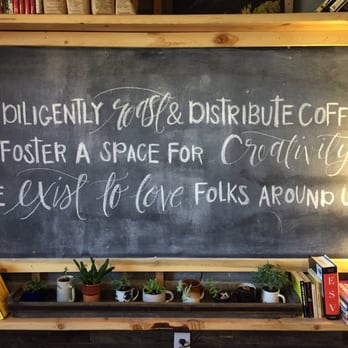 DILIGENTLY roast & DISTRIBUTE COFF
FOSTER A SPACE FOR Creativity
E exist to love FOLKS AROUND U
ESV